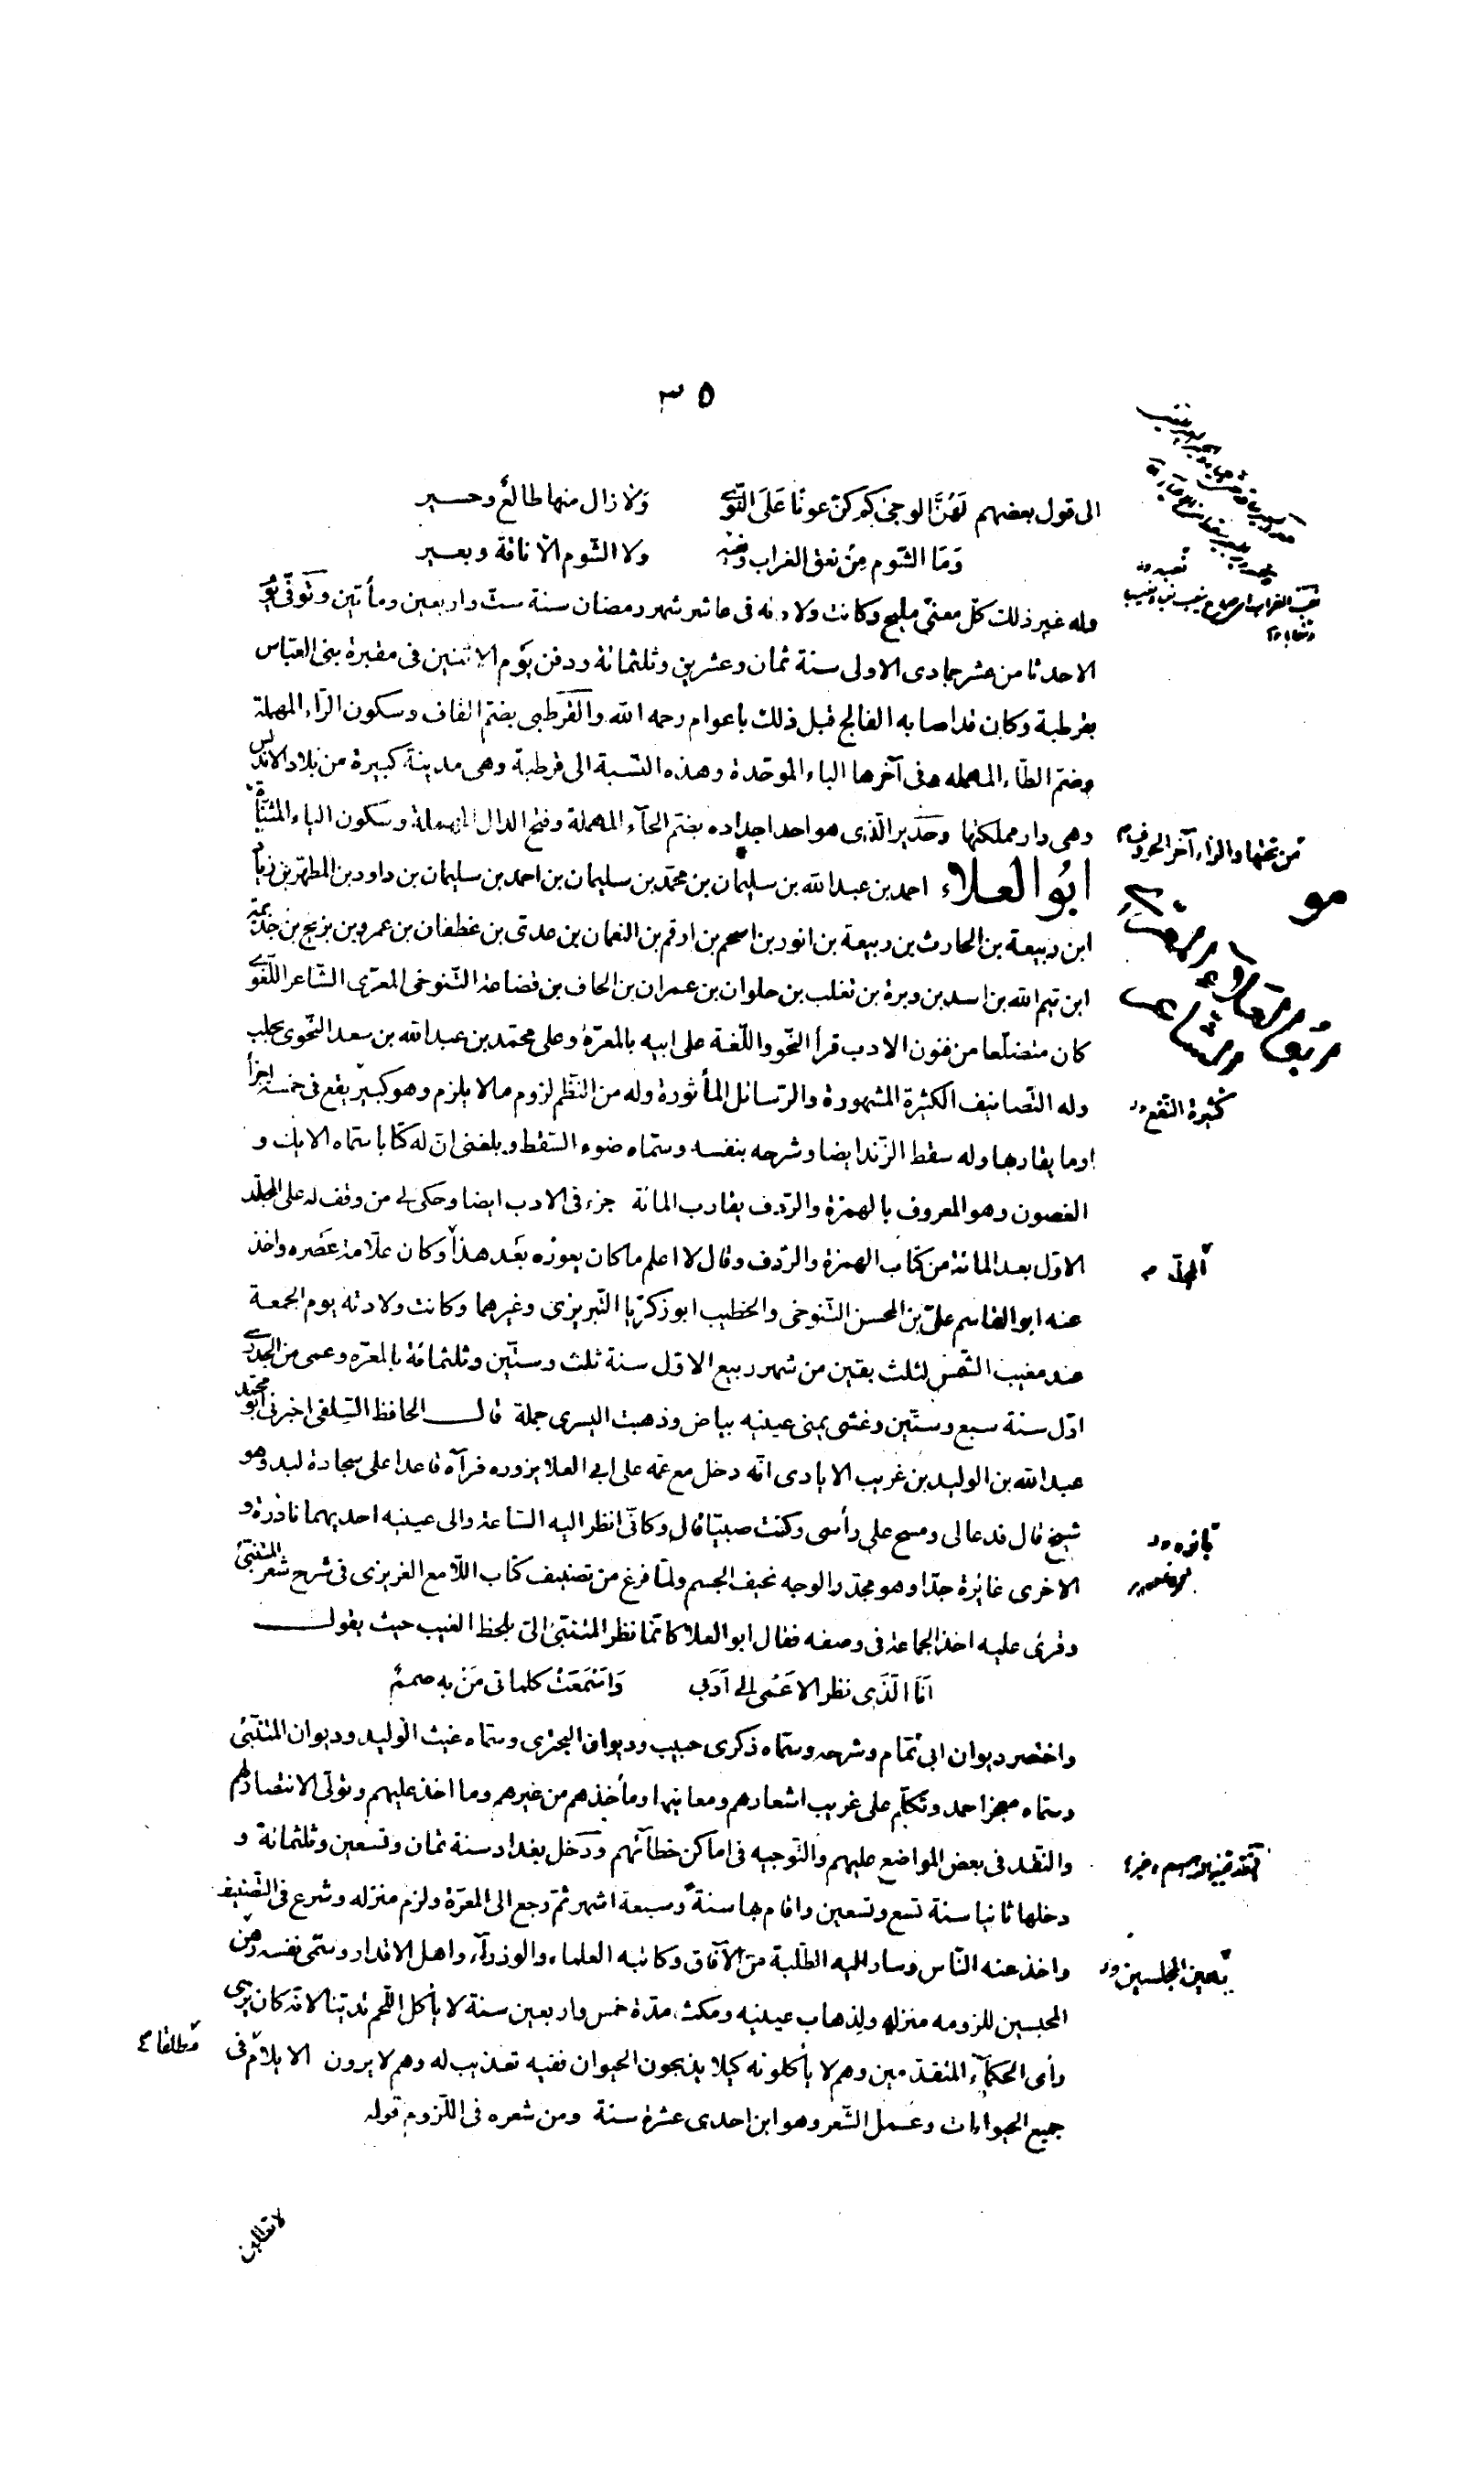 ٣٥
الى قول بعضهم لهنّ الوجى كم كنّ عونا على النّوى ولا زال منها طالع وحسير
وما الشوم من نعق الغراب ونعبه ولا الشوم الا ناقة وبعير
وله غير ذلك كل معنى مليح وكانت ولادته فى عاشر شهر رمضان سنة ست واربعين ومأتين وتوفى يوم
الاحد ثامن عشر جمادى الاولى سنة ثمان وعشرين وثلثمائة ودفن يوم الاثنين فى مقبرة بنى العباس
بقرطبة وكان قد اصابه الفالج قبل ذلك باعوام رحمه الله والقرطبى بضم القاف وسكون الراء المهملة
وضم الطاء المهمله وفى آخرها الباء الموحدة وهذه النسبة الى قرطبة وهى مدينة كبيرة من بلاد الاندلس
وهى دار مملكتها وحدير الذى هو احد اجداده بضم الحاء المهملة وفتح الدال المهملة وسكون الياء المثناة
من تحتها والراء آخر الحروف
ابو العلاء احمد بن عبد الله بن سليمان بن محمد بن سليمان بن احمد بن سليمان بن داود بن المطهر بن زياد
ابن ربيعة بن الحارث بن ربيعة بن انور بن اسحم بن ارقم بن النعمان بن عدى بن غطفان بن عمرو بن بريح بن جذيمة
ابن تيم الله بن اسد بن وبرة بن تغلب بن حلوان بن عمران بن الحاف بن قضاعة التنوخى المعرى الشاعر اللغوى
ابو العلاء المعرى الشاعر
كان متضلعا من فنون الادب قرأ النحو واللغة على ابيه بالمعرة وعلى محمد بن عبد الله بن سعد النحوى بحلب
وله التصانيف الكثيرة المشهورة والرسائل المأثورة وله من النظم لزوم مالا يلزم وهو كبير يقع فى خمسة اجزأ
كثيرة النفع
اوما يقاربها وله سقط الزند ايضا وشرحه بنفسه وسماه ضوء السقط وبلغنى ان له كتابا سماه الايك و
الغصون وهو المعروف بالهمزة والردف يقارب المائة جزء فى الادب ايضا وحكى لى من وقف له على المجلد
الاول بعد المائة من كتاب الهمزة والردف وقال لا اعلم ما كان يعوزه بعد هذا وكان علامة عصره واخذ
المجلد
عنه ابو القاسم على بن المحسن التنوخى والخطيب ابو زكريا التبريزى وغيرهما وكانت ولادته يوم الجمعة
عند مغيب الشمس لثلث بقين من شهر ربيع الاول سنة ثلث وستين وثلثمائة بالمعره وعمى من الجدرى
اول سنة سبع وستين وغشى يمنى عينيه بياض وذهبت اليسرى جملة قال الحافظ السلفى اخبرنى ابو محمد
عبد الله بن الوليد بن غريب الايادى انه دخل مع عمه على ابى العلا يزوره فرآه قاعدا على سجادة لبد وهو
شيخ قال فدعا لى ومسح على رأسى وكنت صبيا قال وكأنى انظر اليه الساعة والى عينيه احديهما نادرة و
الاخرى غائرة جدا وهو مجدر الوجه نحيف الجسم ولما فرغ من تصنيف كتاب اللامع العزيزى فى شرح شعر المتنبى
وقرئ عليه اخذ الجماعة فى وصفه فقال ابو العلا كانما نظر المتنبى الى بلحظ الغيب حيث يقول
انا الذى نظر الاعمى الى ادبى واسمعت كلماتى من به صمم
واختصر ديوان ابى تمام وشرحه وسماه ذكرى حبيب وديوان البحترى وسماه عبث الوليد وديوان المتنبى
وسماه معجز احمد وتكلم على غريب اشعارهم ومعانيها ومأخذهم من غيرهم وما اخذ عليهم وتولى الانتصار لهم
والنقد فى بعض المواضع عليهم والتوجيه فى اماكن خطائهم ودخل بغداد سنة ثمان وتسعين وثلثمائة و
دخلها ثانيا سنة تسع وتسعين واقام بها سنة وسبعة اشهر ثم رجع الى المعرة ولزم منزله وشرع فى التصنيف
واخذ عنه الناس وسار اليه الطلبة من الآفاق وكاتبه العلماء والوزرآء واهل الاقدار وسمى نفسه رهن
المحبسين للزومه منزله ولذهاب عينيه ومكث مدة خمس واربعين سنة لا يأكل اللحم تدينا لانه كان يرى
رأى الحكمآء المتقدمين وهم لا يأكلونه كيلا يذبحون الحيوان ففيه تعذيب له وهم لا يرون الايلام فى
مطلقا
جميع الحيوانات وعمل الشعر وهو ابن احدى عشرة سنة ومن شعره فى اللزوم قوله
لا تطلبن